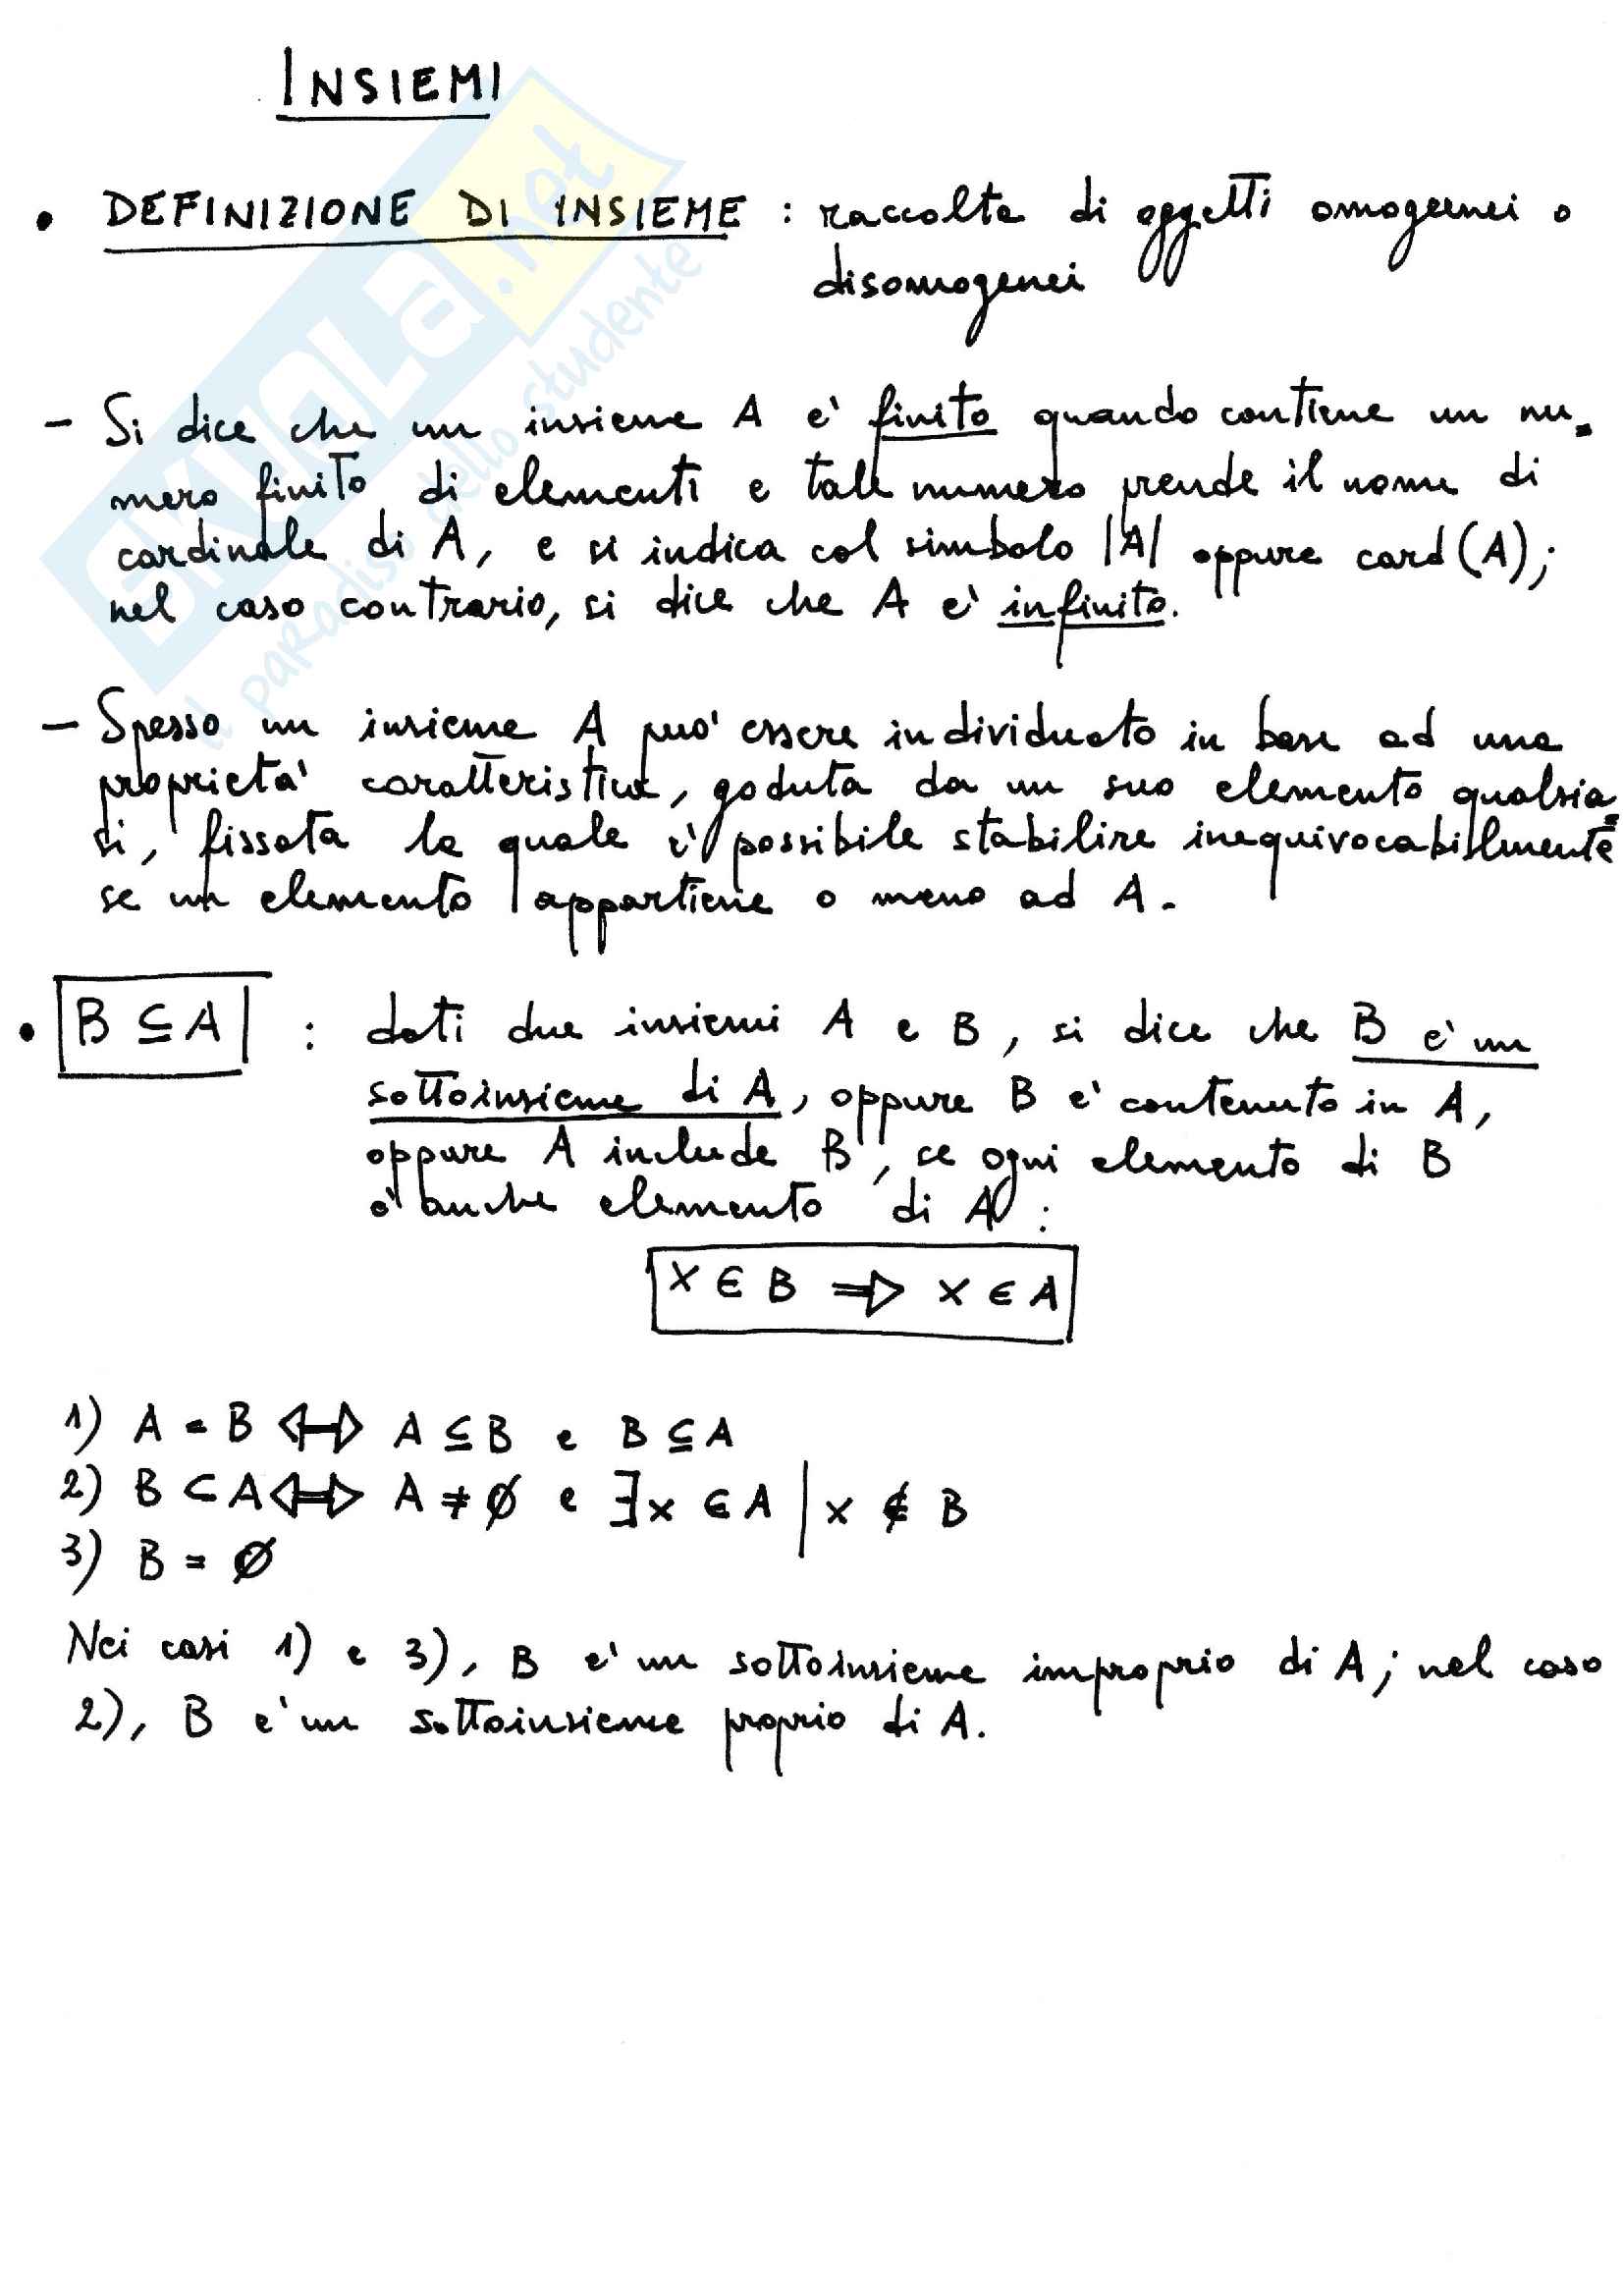 INSIEMI
• DEFINIZIONE DI INSIEME : raccolta di oggetti omogeenei o
disomogenei
- Si dice che un insieme A e' finito quando contiene un nu=
mero finito di elementi e tale numero prende il nome di
cardinale di A, e si indica col simbolo |A| oppure card (A);
nel caso contrario, si dice che A e' infinito.
- Spesso un insieme A puo' essere individuato in base ad una
proprieta' caratteristica, goduta da un suo elemento qualsia=
si, fissata la quale e' possibile stabilire inequivocabilmente
se un elemento appartiene o meno ad A.
• B ⊆ A : dati due insiemi A e B, si dice che B e' un
sottoinsieme di A, oppure B e' contenuto in A,
oppure A include B, se ogni elemento di B
e' anche elemento di A :
x ∈ B ⇒ x ∈ A
1) A = B ⇔ A ⊆ B e B ⊆ A
2) B ⊂ A ⇔ A ≠ ∅ e ∃x ∈ A | x ∉ B
3) B = ∅
Nei casi 1) e 3), B e' un sottoinsieme improprio di A; nel caso
2), B e' un sottoinsieme proprio di A.
SKUOLA.net
il paradiso dello studente